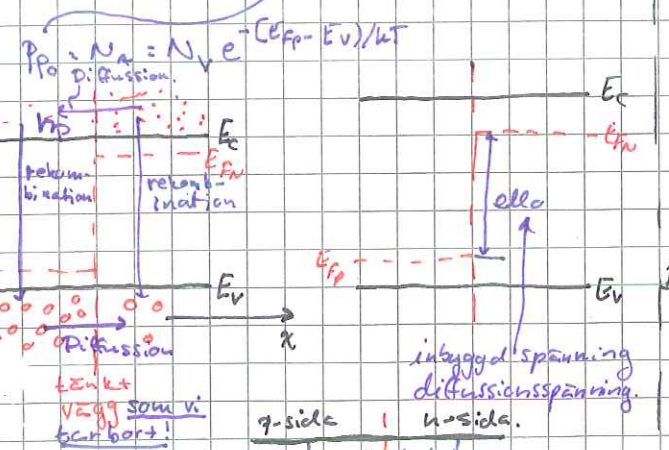 Pp₀ = N_A = N_V e^-(E_Fp - E_V)/kT
Diffussion.
np
E_C
E_FN
rekom-
bination
rekomb-
ination
E_V
Diffussion
x
tänkt
vägg som vi
tar bort!
E_C
E_FN
eU₀
E_Fp
E_V
inbyggd spänning
diffussionsspänning.
p-sida
n-sida.